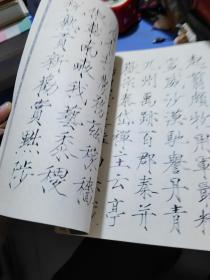 起翦頗牧用軍最精
宣威沙漠馳譽丹青
九州禹跡百郡秦并
嶽宗泰岱禪主云亭
稼穡
載南畝我藝黍稷
稅熟貢新勸賞黜陟